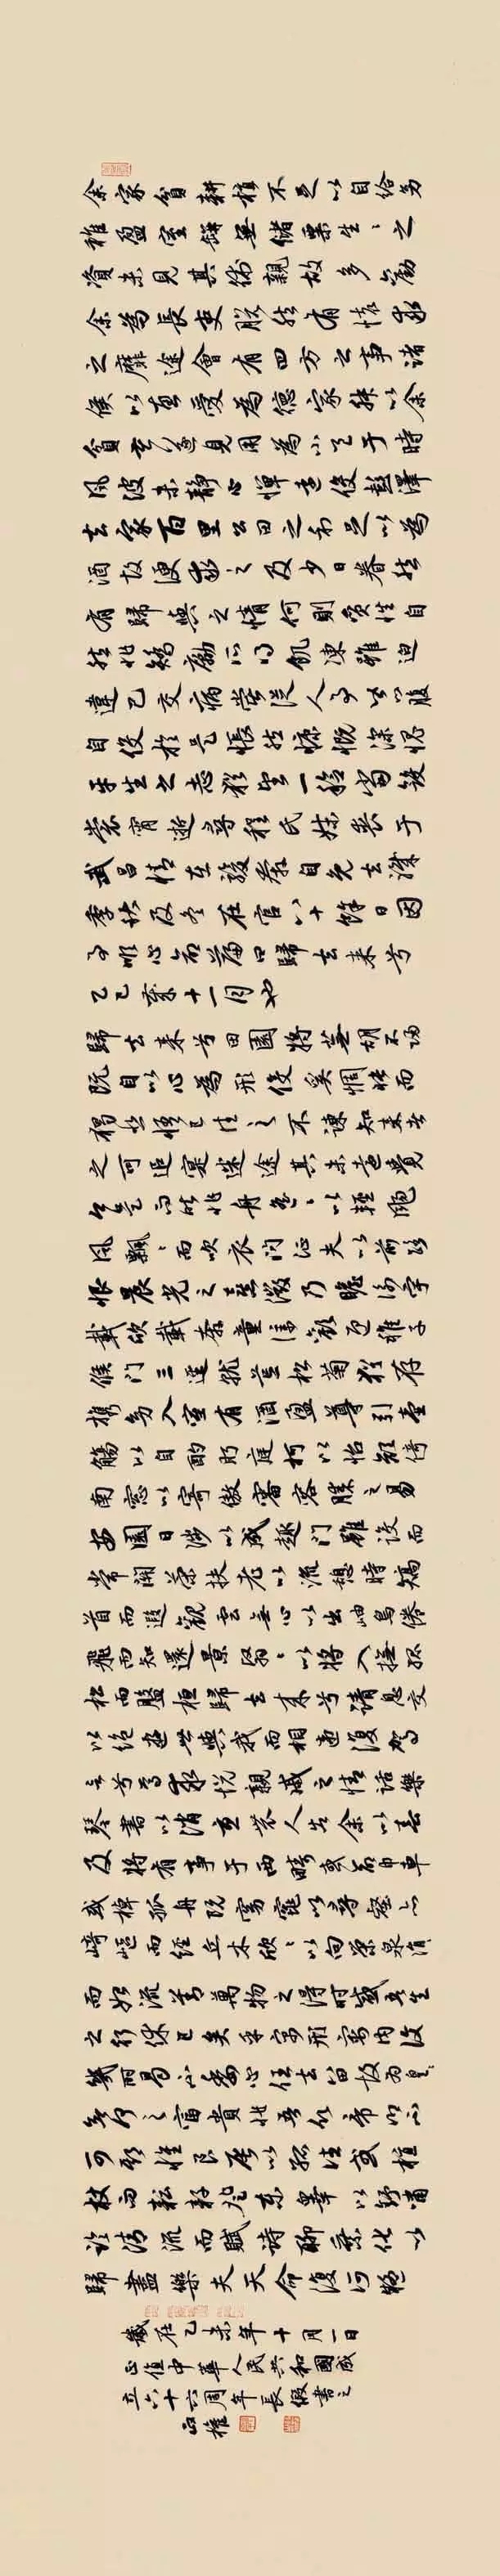 余家貧耕植不足以自給幼
稚盈室缾無儲粟生〻之
資未見其術親故多勸
余為長吏脫然有懷求
之靡途會有四方之事諸
侯以惠愛為德家叔以余
貧苦遂見用為小邑于時
風波未靜心憚遠役彭澤
去家百里公田之利足以為
酒故便求之及少日眷然
有歸與之情何則質性自
然非矯勵所得飢凍雖迫
違己交病嘗從人事皆口腹
自役於是悵然慷慨深愧
平生之志猶望一稔當斂
裳宵逝尋程氏妹喪于
武昌情在駿奔自免去職
季秋及冬在官八十餘日因
事順心命篇曰歸去來兮
乙巳歲十一月也
歸去來兮田園將蕪胡不歸
既自以心為形役奚惆悵而
獨悲悟已往之不諫知來者
之可追寔迷途其未遠覺
今是而昨非舟遙〻以輕颺
風飄〻而吹衣問征夫以前路
恨晨光之熹微乃瞻衡宇
載欣載奔童僕歡迎稚子
候門三逕就荒松菊猶存
攜幼入室有酒盈尊引壺
觴以自酌眄庭柯以怡顏倚
南窗以寄傲審容膝之易
安園日涉以成趣門雖設而
常關策扶老以流憩時矯
首而遐觀雲無心以出岫鳥倦
飛而知還景翳〻以將入撫孤
松而盤桓歸去來兮請息交
以絕遊世與我而相違復駕
言兮焉求悅親戚之情話樂
琴書以消憂農人告余以春
及將有事于西疇或命巾車
或棹孤舟既窈窕以尋壑亦
崎嶇而經丘木欣〻以向榮泉涓
而始流善萬物之得時感吾生
之行休已矣乎寓形寓內復
幾時曷不委心任去留胡為遑
欲何之富貴非吾願帝鄉不
可期懷良辰以孤往或植
杖而耘耔登東皋以舒嘯
臨清流而賦詩聊乘化以
歸盡樂夫天命復奚疑
歲在乙未年十月一日
正值中華人民共和國成
立六十六周年長假書之